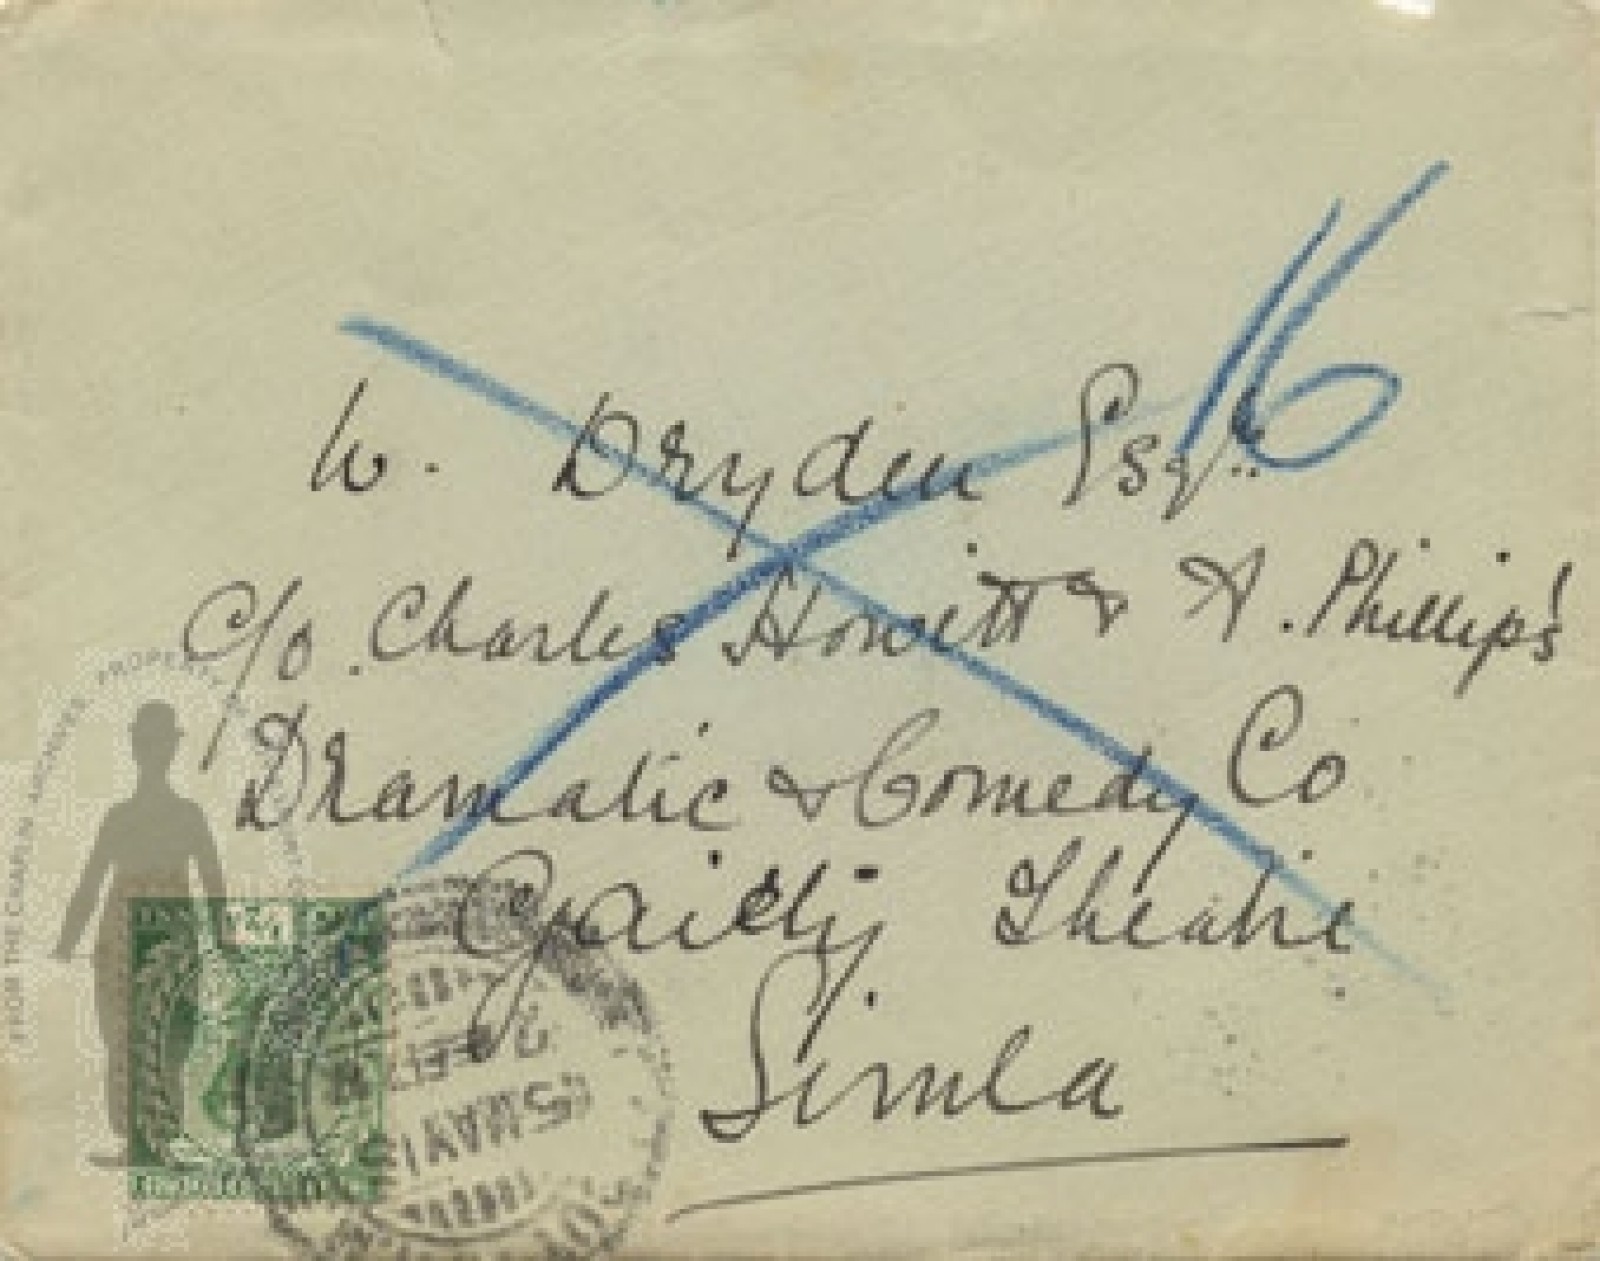 16
W. Dryden Esqr.
C/o. Charles Howitt & A. Phillip's
Dramatic & Comedy Co
Gaiety Theatre
Simla
FROM THE CHAPLIN ARCHIVES. PROPERTY
MAY